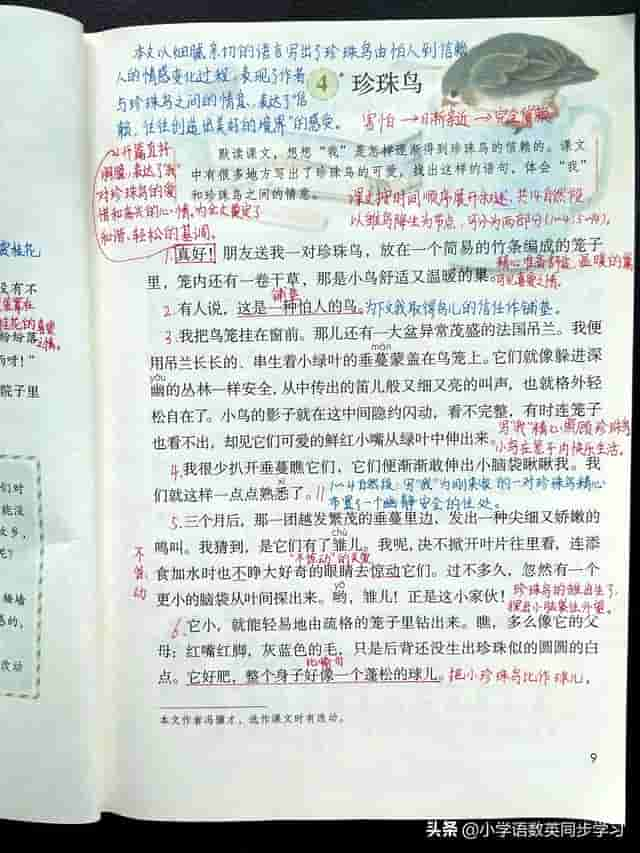 本文以细腻亲切的语言写出了珍珠鸟由怕人到信赖
人的情感变化过程，表现了作者
与珍珠鸟之间的情意，表达了"信
赖，往往创造出美好的境界"的感受。
4* 珍珠鸟
害怕→日渐亲近→完全信赖
开篇直抒
胸臆，表达了"我"
对珍珠鸟的爱
惜和喜欢的心情，为全文奠定了
和谐、轻松的基调。
默读课文，想想"我"是怎样逐渐得到珍珠鸟的信赖的。课文
中有很多地方写出了珍珠鸟的可爱，找出这样的语句，体会"我"
和珍珠鸟之间的情意。
课文按时间顺序展开叙述，共14自然段
以雏鸟降生为节点，可分为两部分(1-4，5-14)。
1.真好！朋友送我一对珍珠鸟，放在一个简易的竹条编成的笼子
里，笼内还有一卷干草，那是小鸟舒适又温暖的巢。
精心准备舒适、温暖的巢
可见喜爱之情。
铺垫
2.有人说，这是一种怕人的鸟。为下文我取得鸟儿的信任作铺垫。
3.我把鸟笼挂在窗前。那儿还有一大盆异常茂盛的法国吊兰。我便
màn
用吊兰长长的、串生着小绿叶的垂蔓蒙盖在鸟笼上。它们就像躲进深
yōu
幽的丛林一样安全，从中传出的笛儿般又细又亮的叫声，也就格外轻
松自在了。小鸟的影子就在这中间隐约闪动，看不完整，有时连笼子
也看不出，却见它们可爱的鲜红小嘴从绿叶中伸出来。
写"我"精心照顾珍珠鸟
小鸟在笼子内快乐生活。
4.我很少扒开垂蔓瞧它们，它们便渐渐敢伸出小脑袋瞅瞅我。我
xī
们就这样一点点熟悉了。
1-4自然段，写"我"为刚来家的一对珍珠鸟精心
布置了一个幽静安全的住处。
5.三个月后，那一团越发繁茂的垂蔓里边，发出一种尖细又娇嫩的
chú
鸣叫。我猜到，是它们有了雏儿。我呢，决不掀开叶片往里看，连添
食加水时也不睁大好奇的眼睛去惊动它们。过不多久，忽然有一个
不
惊
动
yō
更小的脑袋从叶间探出来。哟，雏儿！正是这小家伙！
珍珠鸟的雏出生了，
探出小脑袋往外望。
6.它小，就能轻易地由疏格的笼子里钻出来。瞧，多么像它的父
母：红嘴红脚，灰蓝色的毛，只是后背还没生出珍珠似的圆圆的白
比喻句
点。它好肥，整个身子好像一个蓬松的球儿。把小珍珠鸟比作球儿，
本文作者冯骥才，选作课文时有改动。
9
蜜桂花
没有不
院子里
头条 @小学语数英同步学习